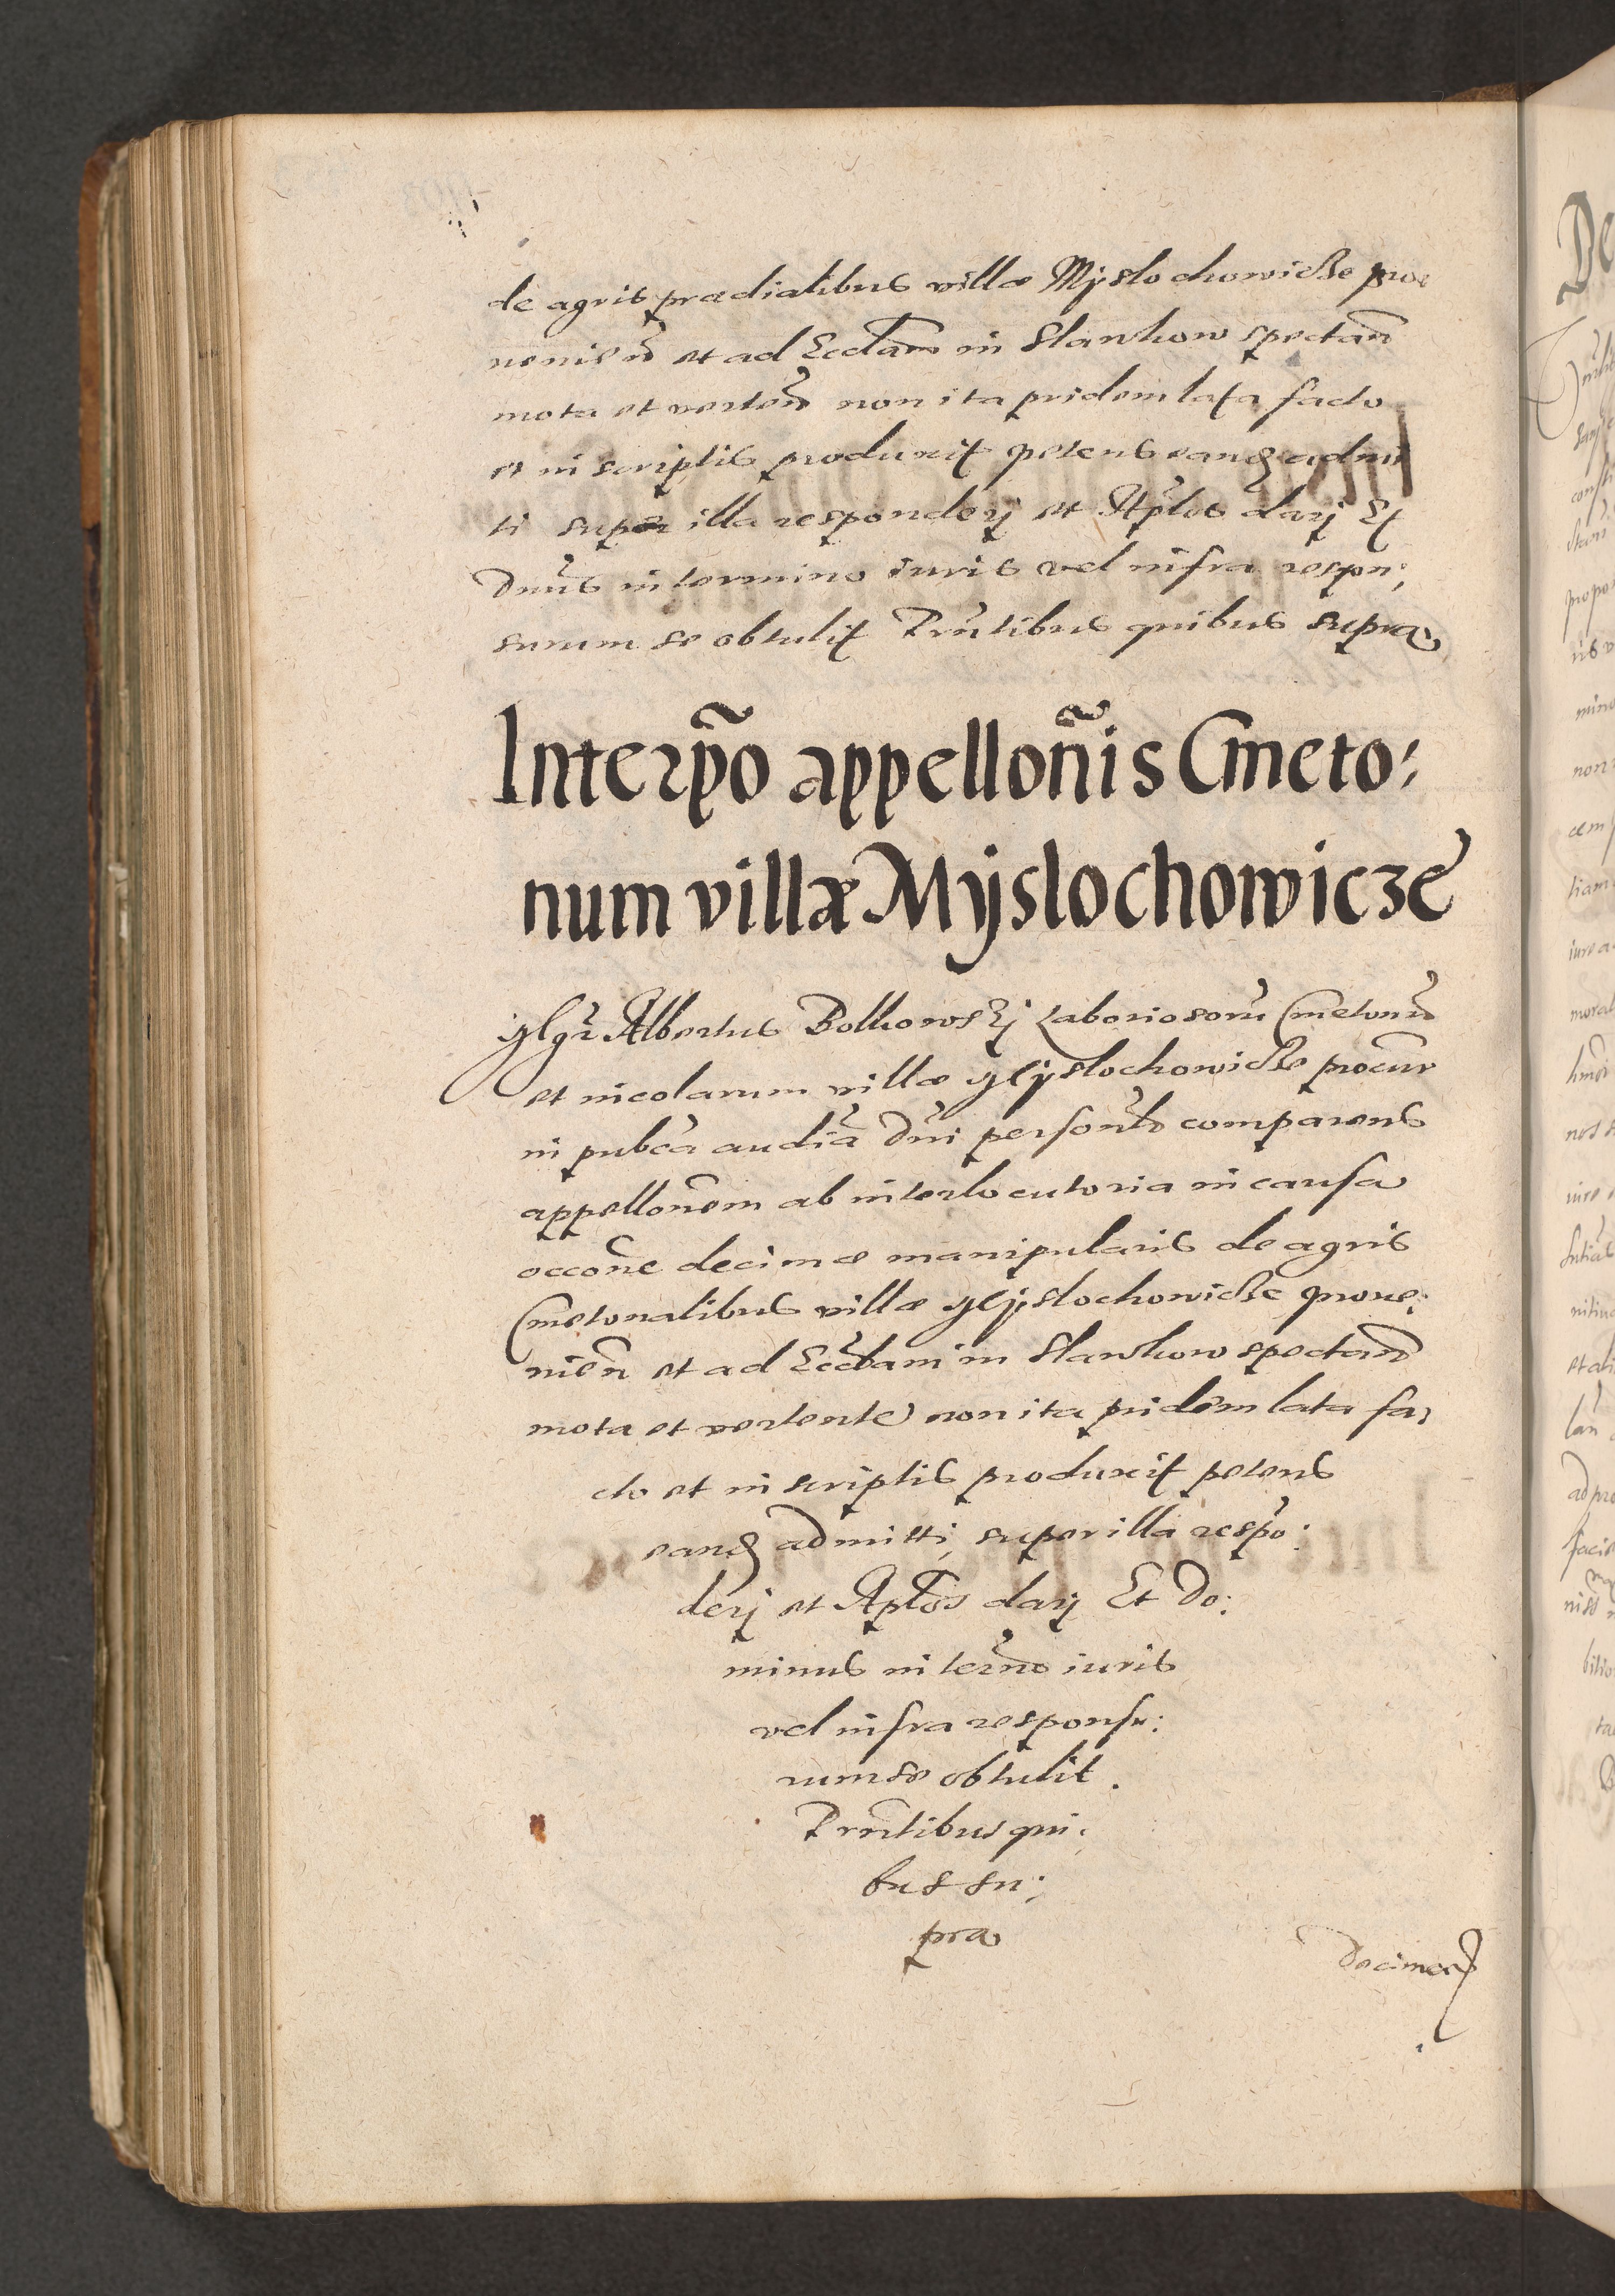 de agris prædialibus villæ Myslochowicze pro
ueniẽ et ad Eccłam in Slawkow spectañ
mota et verteñ non ita pridem lata facto
et in scriptis produxit petens eandẽ admit
ti super illa responderj et Ap̃lus darj Et
Dñus in termino iuris vel infra respon;
surum se obtulit Pñtibus quibus supra
Interp̃o appelloñis Cmeto:
num villæ Myslochowicze
Mgr̃ Albertus Bolkowskj Laboriosorũ Cmetonũ
et incolarum villæ Myslochowicze procur
in pub̃ca audĩa Dñi personłr comparens
appellonẽm ab interlocutoria in causa
occoñe decimæ manipularis de agris
Cmetonalibus villæ Myslochowicze proue:
nieñ et ad Eccłam in Slawkow spectañ
mota et vertente non ita pridem lata fa:
cto et in scriptis produxit petens
eandẽ admitti, super illa respõ:
derj et Apłos darj Et Do:
minus in termo iuris
vel infra responsu:
rum se obtulit.
Pñtibus qui:
bus su:
pra
Decimæ